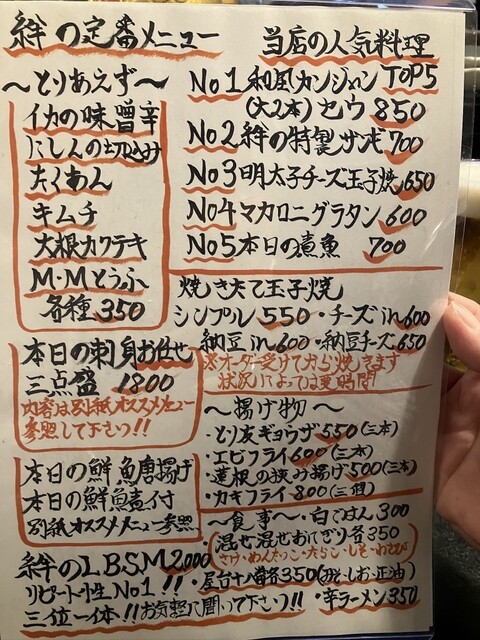 絆の定番メニュー
〜とりあえず〜
イカの味噌辛
にしんの切込み
たくあん
キムチ
大根カクテキ
M・Mとうふ
各種350
本日の刺身お任せ
三点盛 1800
内容は別紙オススメメニュー
参照して下さい!!
本日の鮮魚唐揚げ
本日の鮮魚煮付
別紙オススメメニュー参照
絆のL.B.S.M2,000
リピート性No1!!
三位一体!!お気軽に聞いて下さい!!
当店の人気料理
No1 和風カンジャン TOP5
(大2本)セウ 850
No2 絆の特製ザンギ 700
No3 明太子チーズ玉子焼 650
No4 マカロニグラタン 600
No5 本日の煮魚 700
焼きたて玉子焼
シンプル 550・チーズin600
納豆in600・納豆チーズ650
※オーダー受けてから焼きます
状況によっては要時間
〜揚げ物〜
・とり皮ギョウザ550(三本)
・エビフライ600(三本)
・蓮根の挟み揚げ500(三本)
・カキフライ800(三個)
〜食事〜・白ごはん300
・混ぜ混ぜおにぎり各350
さけ・めんたいこ・たらこ・しそ・わさび
・屋台十八番各350(みそ・しお・正油)
・辛ラーメン350